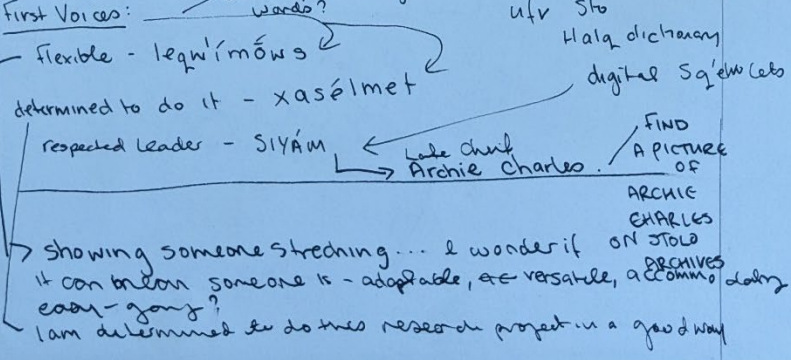 First Voices:
words?
ufv Sto
Halq dictionary
digital Sq'ewlets
flexible - leqw'ímōws
determined to do it - xasélmet
respected leader - SIYÁM
Late Chief
Archie Charles.
FIND
A PICTURE
OF
ARCHIE
CHARLES
ON STOLO
ARCHIVES
showing someone streching... I wonder if
it can mean someone is - adaptable, versatile, accommodating
easy-going?
I am determined to do this research project in a good way